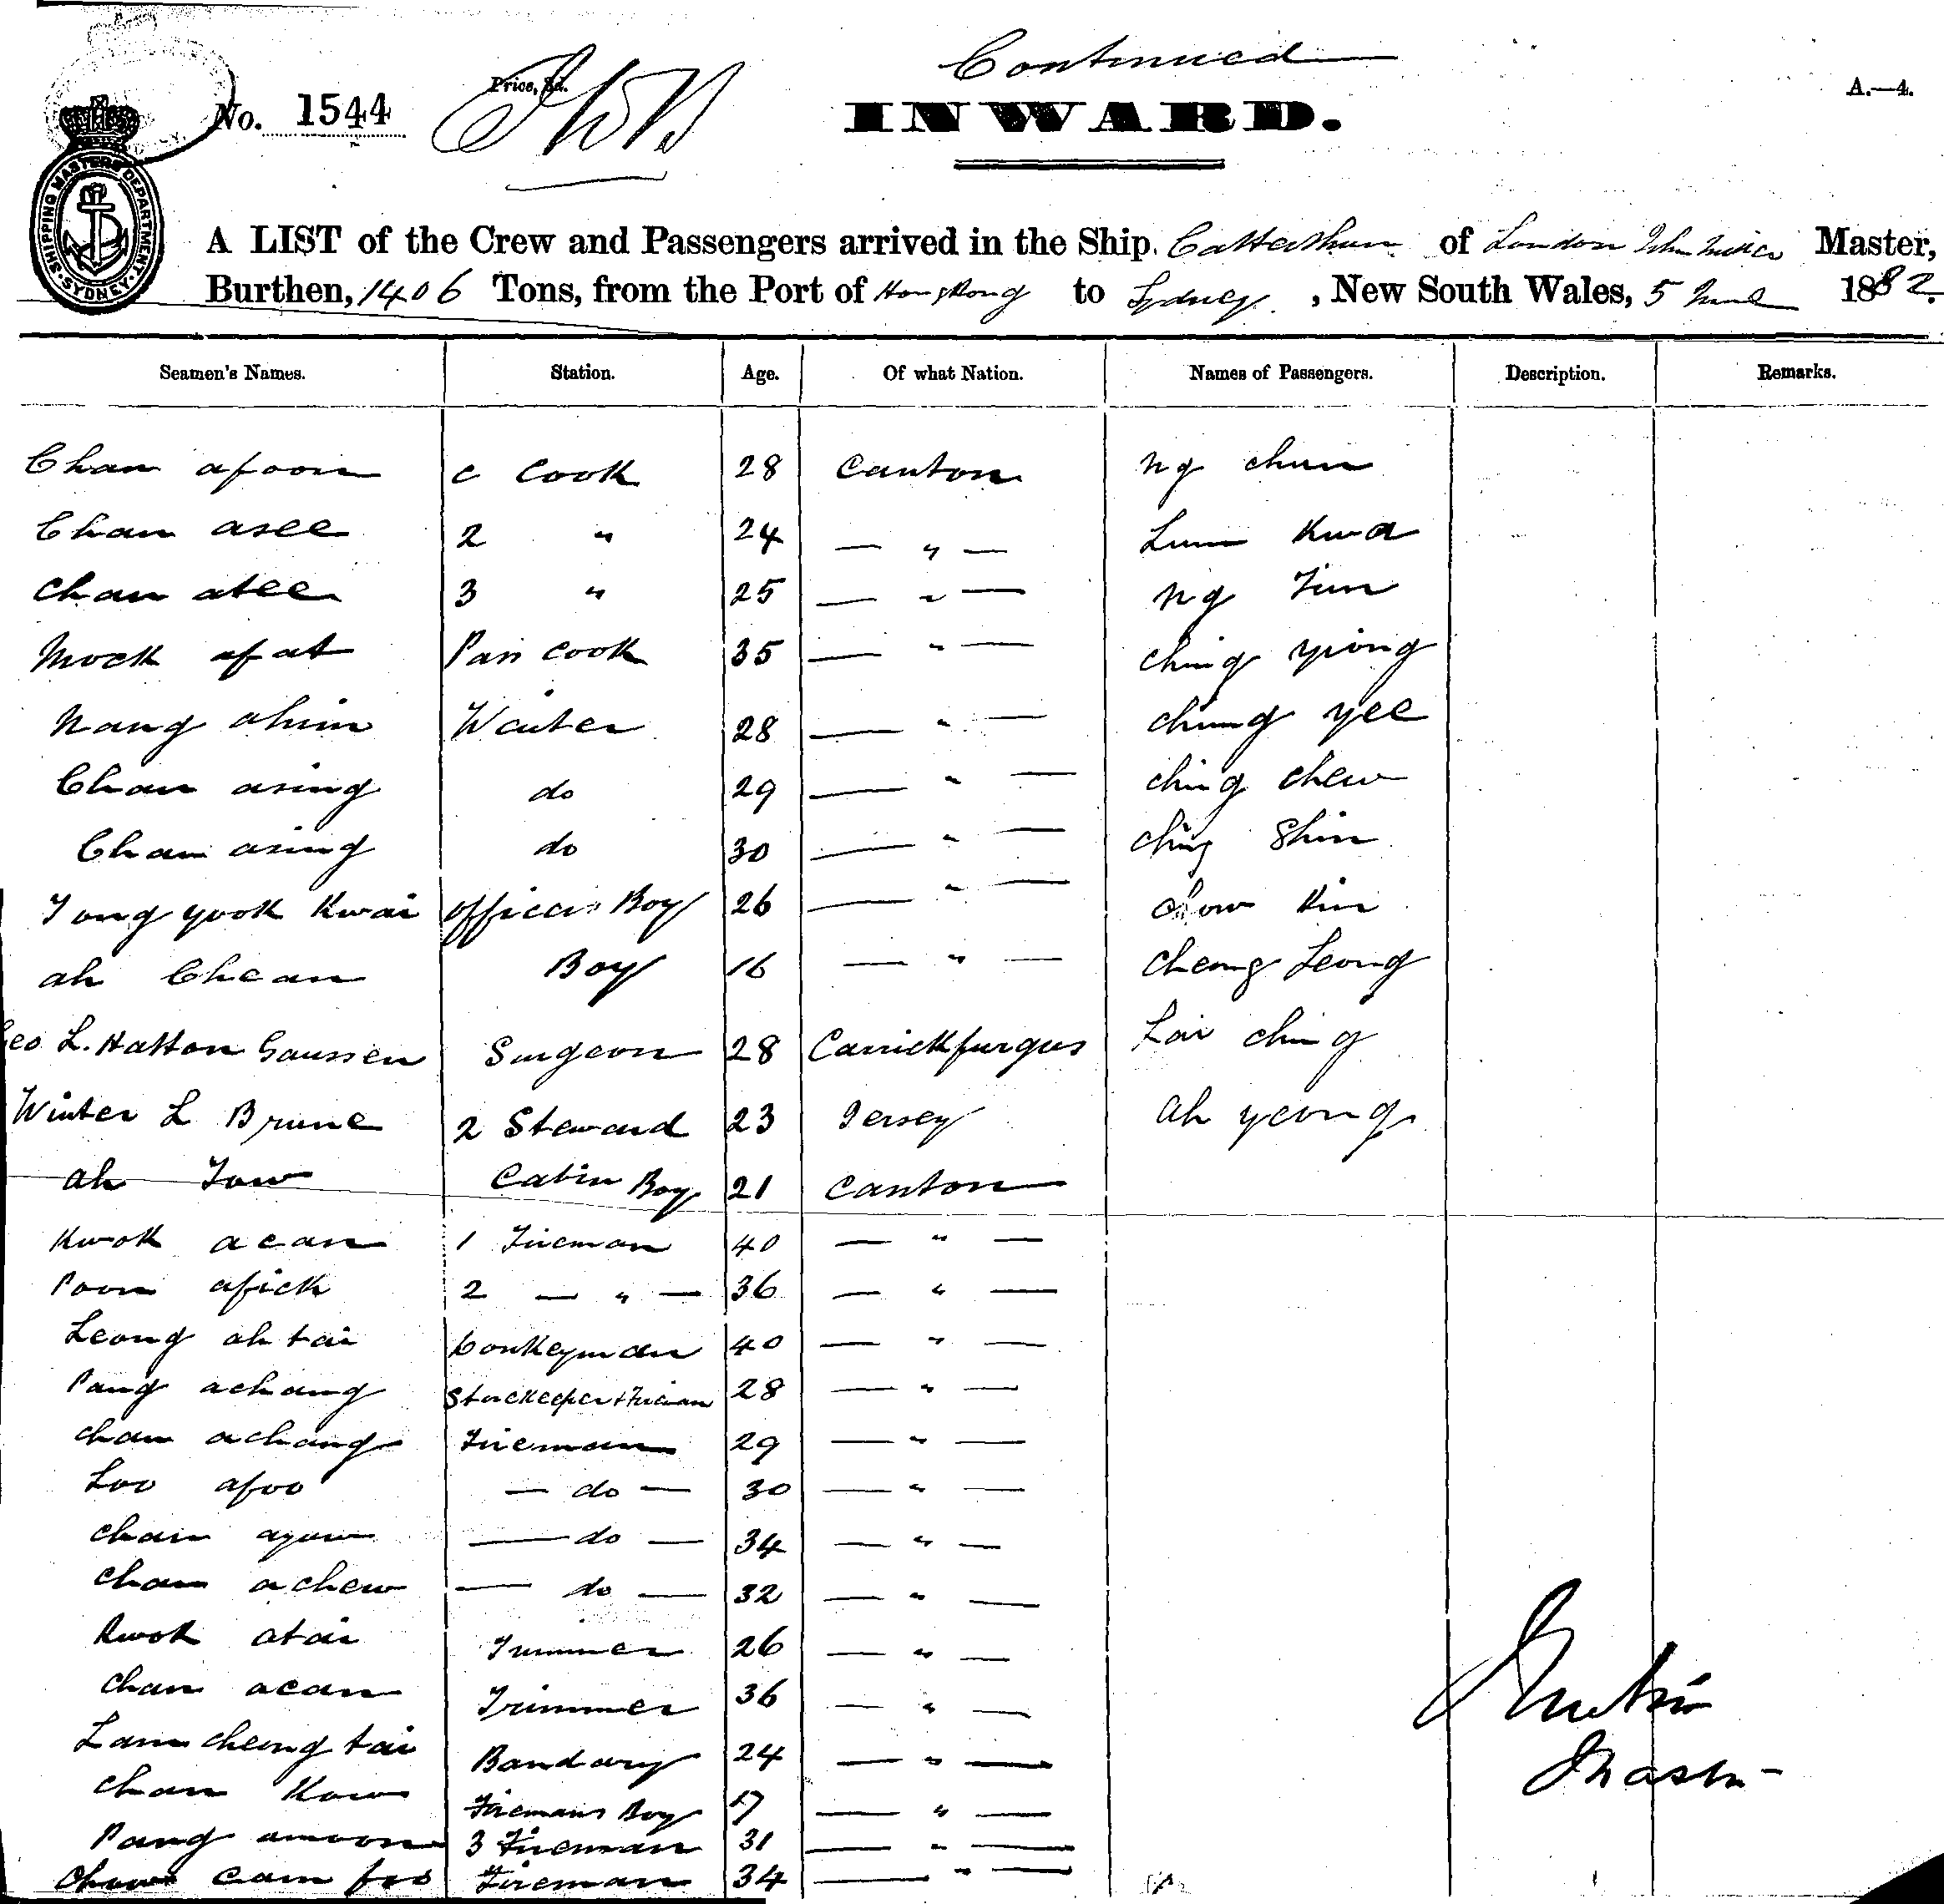 Continued
A.—4.
No. 1544 Price, 3d.
INWARD.
SHIPPING MASTERS DEPARTMENT. SYDNEY.
A LIST of the Crew and Passengers arrived in the Ship Catterthun of London John Miller Master,
Burthen, 1406 Tons, from the Port of Hong Kong to Sydney, New South Wales, 5 June 1882.
Seamen's Names. Station. Age. Of what Nation. Names of Passengers. Description. Remarks.
Chan afoon c Cook 28 Canton ng chun
Chan asee 2 " 24 — " — Lum Kwa
Chan atee 3 " 25 — " — ng
Mock afat Pan cook 35 — " — ching yiong
Nang ahim Waiter 28 — " — chung yee
Chan asing do 29 — " — ching chew
Chan asing do 30 — " — ching Shin
Tong yook Kwai officers Boy 26 — " — Kin
ah Chean Boy 16 — " — Cheong Leong
Geo L. Hatton Gaussen Surgeon 28 Carrickfurgus Lai ching
Winter L Brune 2 Steward 23 Jersey Ah yeong
ah Tow Cabin Boy 21 Canton
Kwok acan 1 Fireman 40 — " —
Poon afick 2 — " — 36 — " —
Leong ah tai Donkeyman 40 — " —
Pang achang Storekeeper + Fireman 28 — " —
chan achang Fireman 29 — " —
Loo afoo — do — 30 — " —
chan ayow — do — 34 — " —
chan achew — do — 32 — " —
Kwok atai Trimmer 26 — " —
chan acan Trimmer 36 — " —
Lam cheong tai Bandary 24 — " —
chan Kow Firemans Boy 17 — " —
Pang amoon 3 Fireman 31 — " —
Chan cam foo Fireman 34 — " —
Master